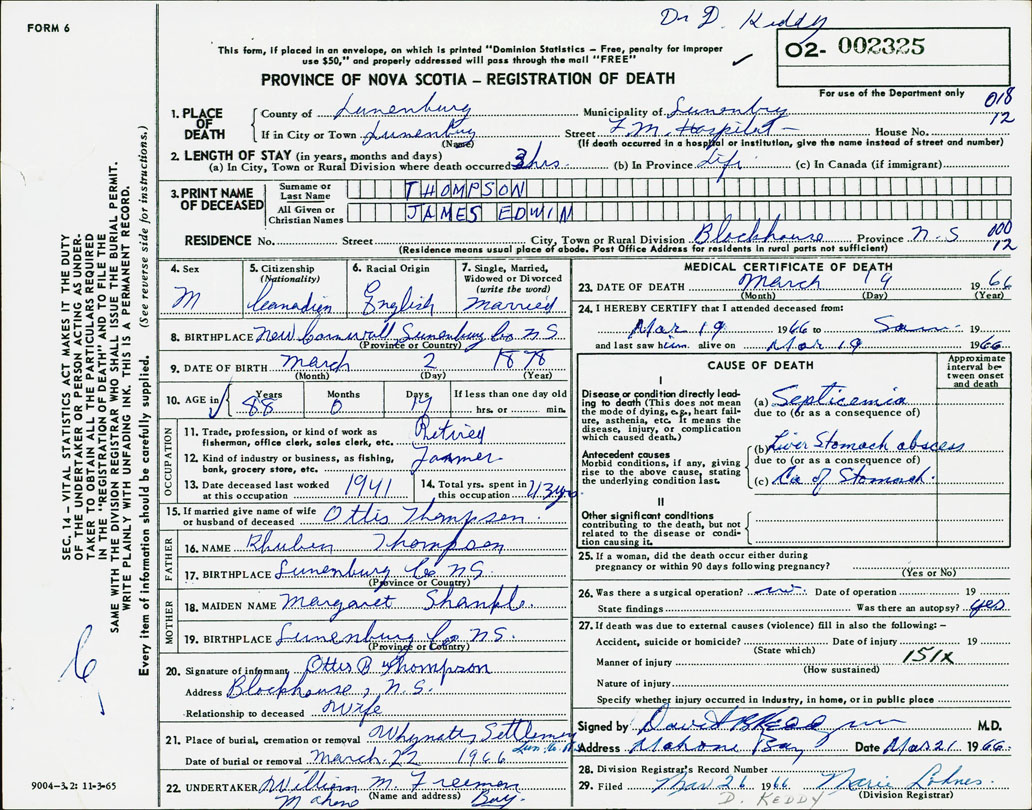 Dr D. Keddy
FORM 6
This form, if placed in an envelope, on which is printed "Dominion Statistics – Free, penalty for improper
use $50," and properly addressed will pass through the mail "FREE"
✓
O2- 002325
PROVINCE OF NOVA SCOTIA – REGISTRATION OF DEATH
For use of the Department only
018
12
1. PLACE OF DEATH
County of Lunenburg Municipality of Lunenburg
If in City or Town Lunenburg (Name) Street F.M. Hospital – House No.
(If death occurred in a hospital or institution, give the name instead of street and number)
2. LENGTH OF STAY (in years, months and days)
(a) In City, Town or Rural Division where death occurred 3 hrs. (b) In Province Life (c) In Canada (if immigrant)
3. PRINT NAME OF DECEASED
Surname or Last Name THOMPSON
All Given or Christian Names JAMES EDWIN
RESIDENCE No. Street City, Town or Rural Division Blockhouse Province N-S
000
12
(Residence means usual place of abode. Post Office Address for residents in rural parts not sufficient)
4. Sex M
5. Citizenship (Nationality) Canadian
6. Racial Origin English
7. Single, Married, Widowed or Divorced (write the word) Married
8. BIRTHPLACE New Cornwall Lunenburg Co N S
(Province or Country)
9. DATE OF BIRTH March 2 1878
(Month) (Day) (Year)
10. AGE in Years 88 Months 0 Days 17 If less than one day old hrs. or min.
OCCUPATION
11. Trade, profession, or kind of work as fisherman, office clerk, sales clerk, etc. Retired
12. Kind of industry or business, as fishing, bank, grocery store, etc. Farmer
13. Date deceased last worked at this occupation 1941
14. Total yrs. spent in this occupation 43 yrs
15. If married give name of wife or husband of deceased Ottis Thompson.
FATHER
16. NAME Rhuben Thompson
17. BIRTHPLACE Lunenburg Co N.S.
(Province or Country)
MOTHER
18. MAIDEN NAME Margaret
19. BIRTHPLACE Lunenburg Co N.S.
(Province or Country)
20. Signature of informant Ottis B Thompson
Address Blockhouse, N.S.
Relationship to deceased Wife
21. Place of burial, cremation or removal Whynotts Settlement
Lun. Co. N.S.
Date of burial or removal March 22 1966
22. UNDERTAKER William M. Freeman
(Name and address)
Mahone Bay.
MEDICAL CERTIFICATE OF DEATH
23. DATE OF DEATH March 19 1966
(Month) (Day) (Year)
24. I HEREBY CERTIFY that I attended deceased from:
Mar 19 1966 to Same 19
and last saw him alive on Mar 19 1966
CAUSE OF DEATH
Approximate interval between onset and death
I
Disease or condition directly leading to death (This does not mean the mode of dying, e.g., heart failure, asthenia, etc. It means the disease, injury, or complication which caused death.)
(a) Septicemia
due to (or as a consequence of)
Antecedent causes
Morbid conditions, if any, giving rise to the above cause, stating the underlying condition last.
(b) Liver Stomach abscess
due to (or as a consequence of)
(c) Ca of Stomach.
II
Other significant conditions
contributing to the death, but not related to the disease or condition causing it.
25. If a woman, did the death occur either during pregnancy or within 90 days following pregnancy?
(Yes or No)
26. Was there a surgical operation? no. Date of operation 19
State findings Was there an autopsy? yes
27. If death was due to external causes (violence) fill in also the following: –
Accident, suicide or homicide? Date of injury 19
(State which)
Manner of injury 151X
(How sustained)
Nature of injury
Specify whether injury occurred in Industry, in home, or in public place
Signed by David B Keddy M.D.
Address Mahone Bay Date Mar 21 1966
28. Division Registrar's Record Number
29. Filed Mar 26 1966 Marie Lohnes.
(Division Registrar)
D. KEDDY
SEC. 14 – VITAL STATISTICS ACT MAKES IT THE DUTY
OF THE UNDERTAKER OR PERSON ACTING AS UNDER-
TAKER TO OBTAIN ALL THE PARTICULARS REQUIRED
IN THE "REGISTRATION OF DEATH" AND TO FILE THE
SAME WITH THE DIVISION REGISTRAR WHO SHALL ISSUE THE BURIAL PERMIT.
WRITE PLAINLY WITH UNFADING INK. THIS IS A PERMANENT RECORD.
Every item of information should be carefully supplied. (See reverse side for instructions.)
9004-3.2: 11-3-65